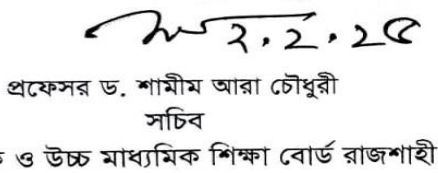 ২.২.২৫
প্রফেসর ড. শামীম আরা চৌধুরী
সচিব
ও উচ্চ মাধ্যমিক শিক্ষা বোর্ড রাজশাহী